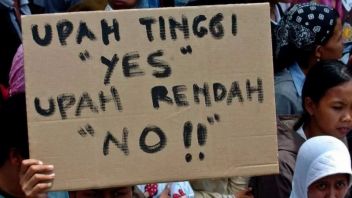 UPAH TINGGI
"YES"
UPAH RENDAH
"NO!!